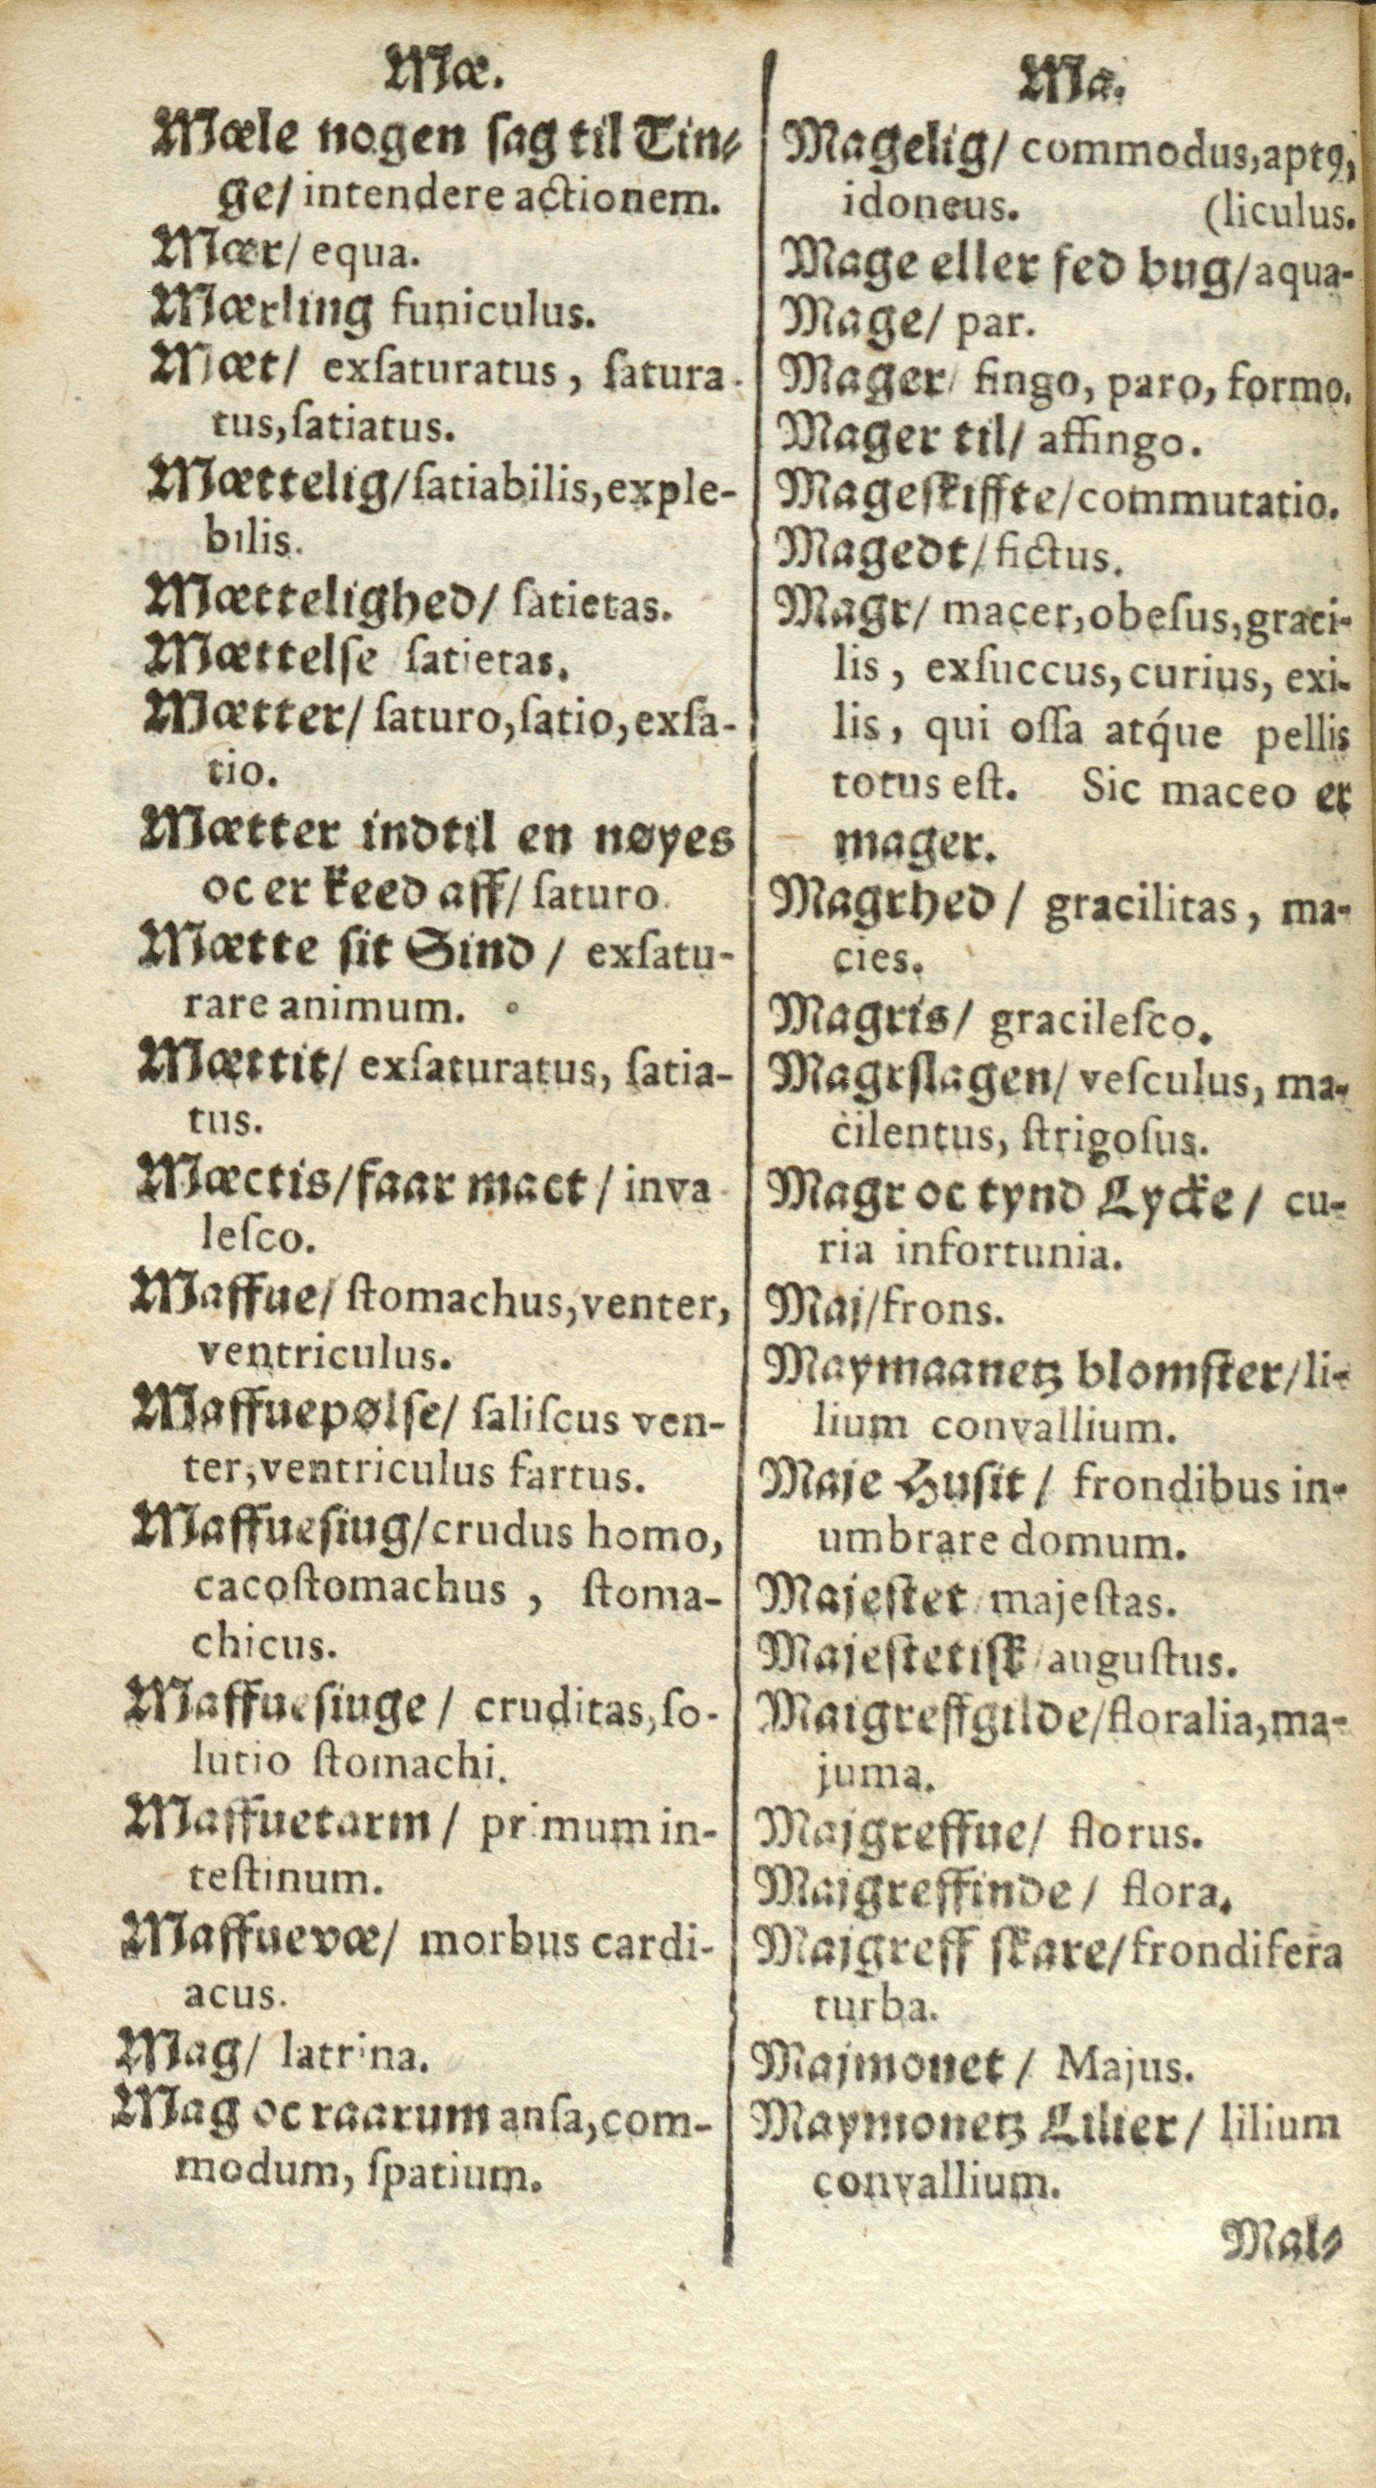 Mæ.
Mæle nogen ſag til Tin⸗
ge/ intendere actionem.
Mær/ equa.
Mærling funiculus.
Mæt/ exſaturatus, ſatura-
tus,ſatiatus.
Mættelig/ſatiabilis,exple-
bilis.
Mættelighed/ ſatietas.
Mættelſe ſatietas.
Mætter/ ſaturo,ſatio,exſa-
tio.
Mætter indtil en nøyes
oc er keed aff/ ſaturo.
Mætte ſit Sind / exſatu-
rare animum.
Mættit/ exſaturatus, ſatia-
tus.
Mæctis/faar mact / inva-
leſco.
Maffue/ ſtomachus,venter,
ventriculus.
Maffuepølſe/ ſaliſcus ven-
ter,ventriculus fartus.
Maffueſiug/crudus homo,
cacoſtomachus , ſtoma-
chicus.
Maffueſiuge / cruditas,ſo-
lutio ſtomachi.
Maffuetarm / primum in-
teſtinum.
Maffuevæ/ morbus cardi-
acus.
Mag/ latrina.
Mag oc raarum anſa,com-
modum, ſpatium.
Ma.
Magelig/ commodus,aptꝯ,
idoneus. (liculus.
Mage eller fed bug/aqua-
Mage/ par.
Mager/ fingo, paro, formo.
Mager til/ affingo.
Mageſkiffte/commutatio.
Magedt/fictus.
Magr/ macer,obeſus,graci-
lis , exſuccus,curius, exi-
lis, qui oſſa atq́ue pellis
totus eſt. Sic maceo er
mager.
Magrhed / gracilitas, ma-
cies.
Magris/ gracileſco.
Magrſlagen/ veſculus, ma-
cilentus, ſtrigoſus.
Magr oc tynd Lycke / cu-
ria infortunia.
Maj/frons.
Maymaanetz blomſter/li-
lium convallium.
Maje Huſit / frondibus in-
umbrare domum.
Majeſtet/majeſtas.
Majeſtetiſk/auguſtus.
Maigreffgilde/floralia,ma-
juma.
Majgreffue/ florus.
Majgreffinde / flora.
Majgreff ſkare/frondifera
turba.
Majmonet / Majus.
Maymonetz Lilier / lilium
convallium.
Mal⸗